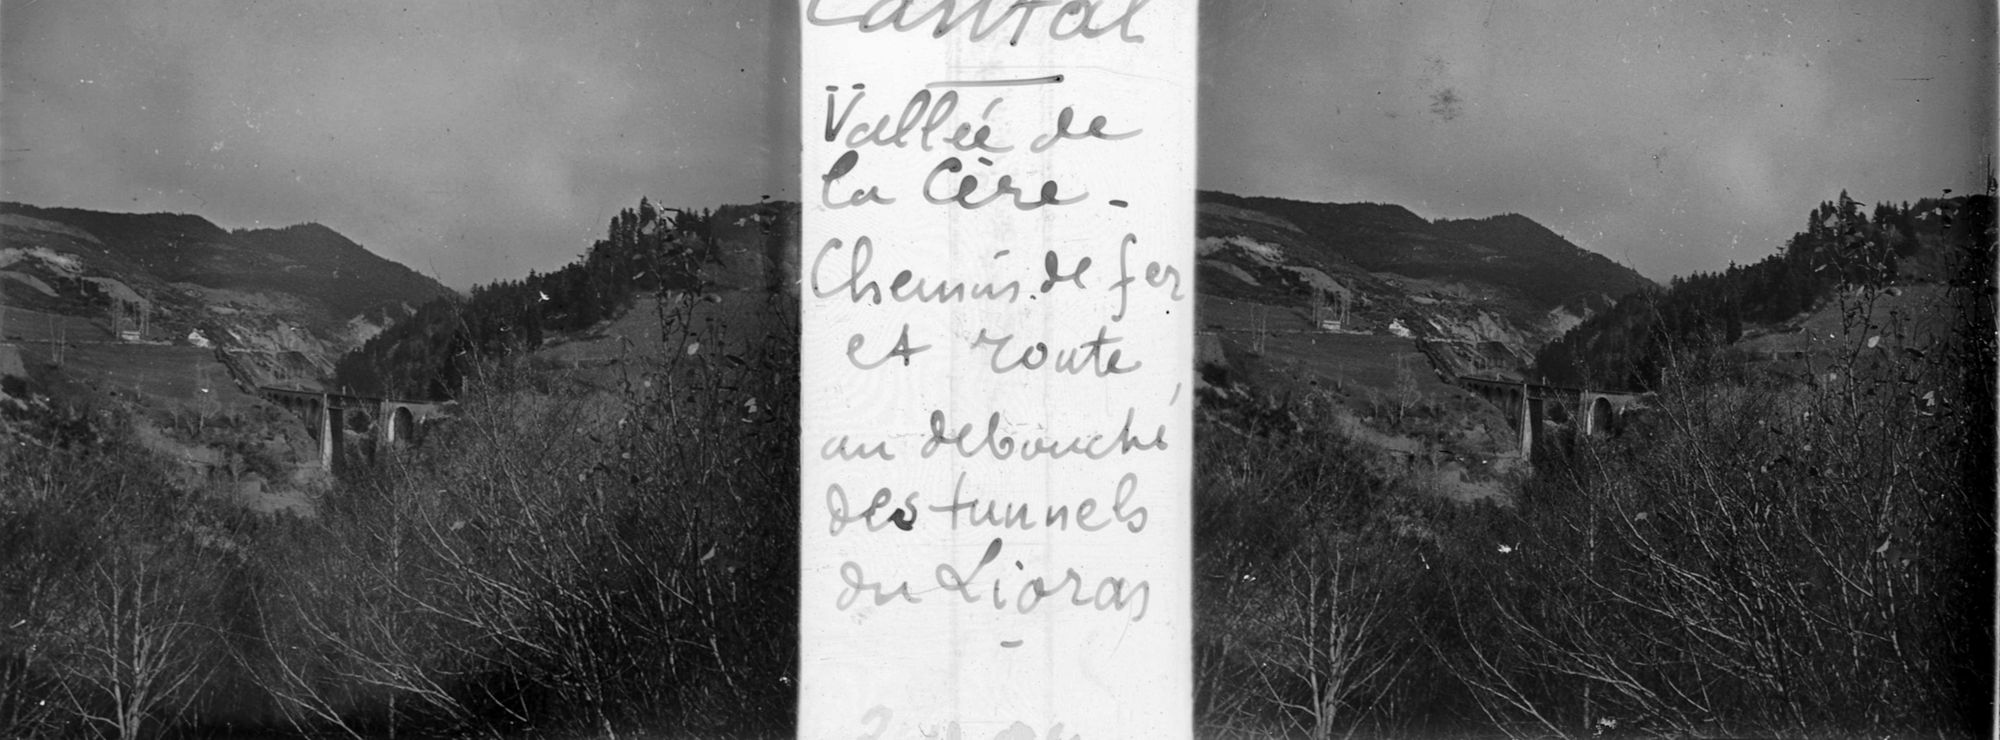 Cantal
Vallée de
la Cère -
Chemin de fer
et route
au débouché
des tunnels
du Lioran